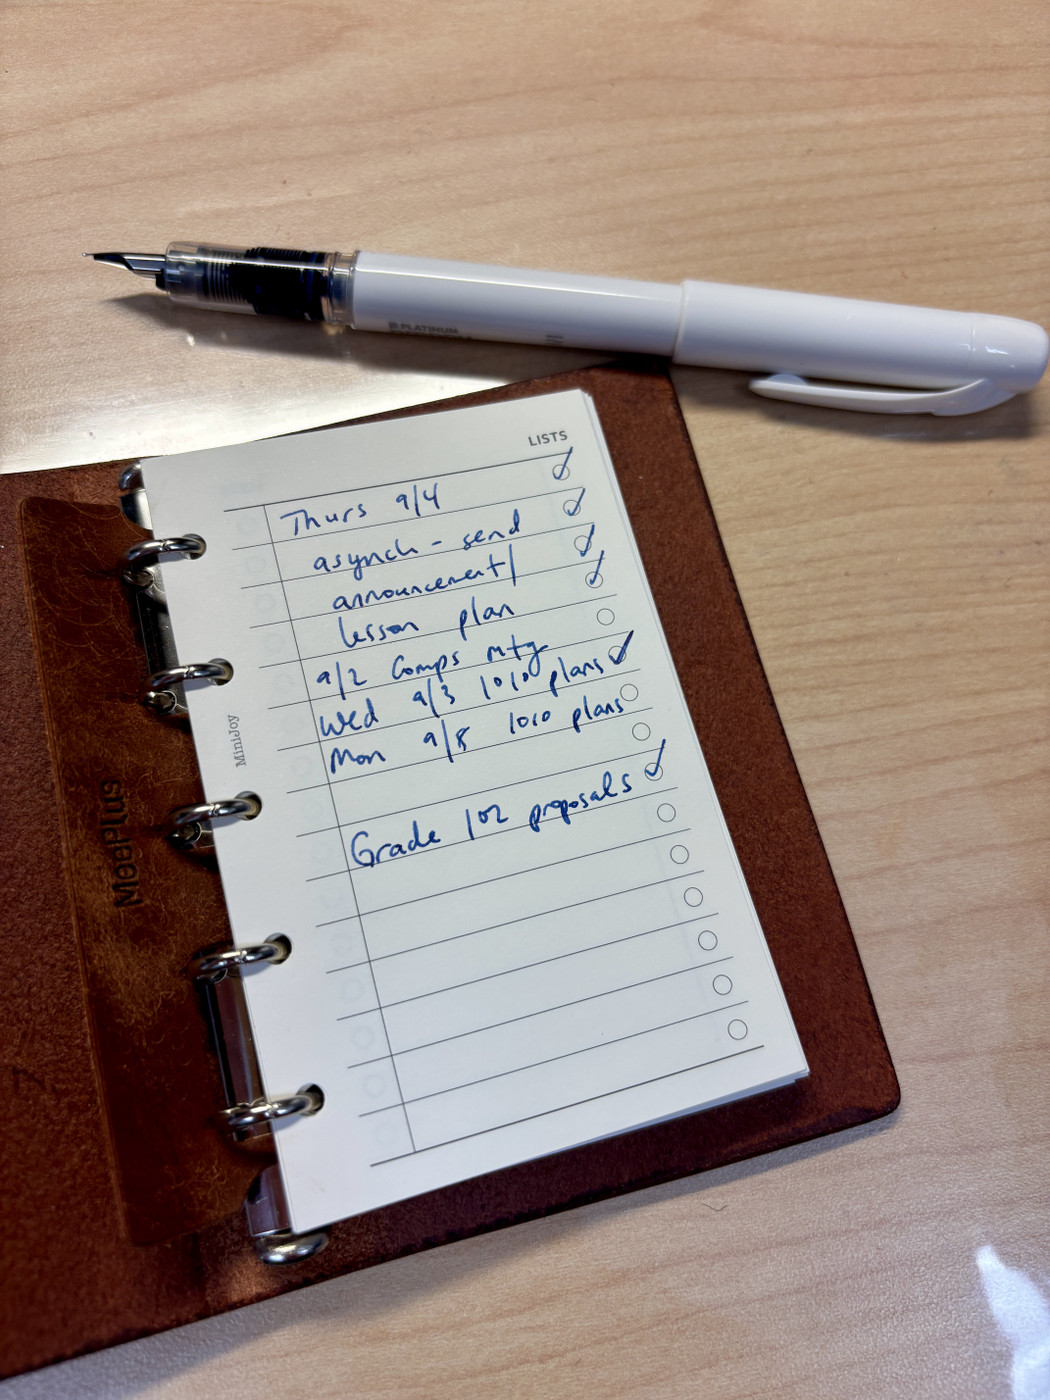 PLATINUM
LISTS
Thurs 9/4
asynch - send
announcement/
lesson plan
9/2 Comps mtg
Wed 9/3 1010 plans
Mon 9/8 1010 plans
Grade 102 proposals
MiniJoy
MeePlus